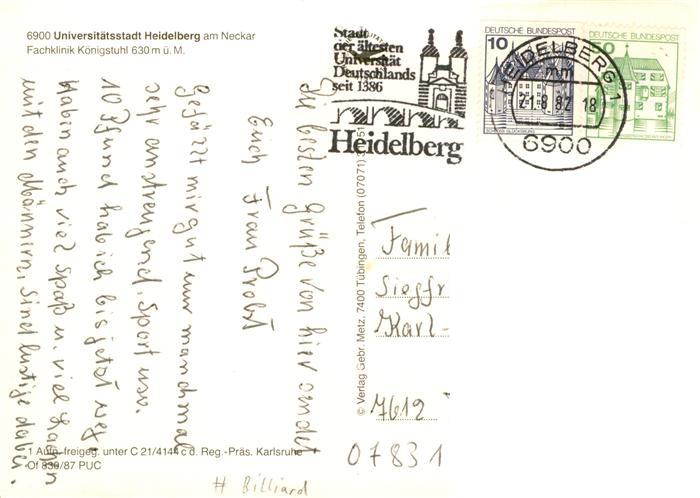 6900 Universitätsstadt Heidelberg am Neckar
Fachklinik Königstuhl 630 m ü. M.
Stadt
der ältesten
Universität
Deutschlands
seit 1386
Heidelberg
DEUTSCHE BUNDESPOST
10
DEUTSCHE BUNDESPOST
50
HEIDELBERG 1
mm
21.8.87 18
6900
Die besten Grüße von hier sendet
Euch Frau Probst
Gefällt mir gut nur manchmal
sehr anstrengend. Sport usw.
10 Pfund hab ich bis jetzt weg
Habin auch viel Spaß u. viel Lachen
mit den Männern, sind lustige dabei.
© Verlag Gebr. Metz, 7400 Tübingen, Telefon (07071)
Famil
Siegfr
Karl-
7612
07831
1 Aufn. freigeg. unter C 21/4144 c d. Reg.-Präs. Karlsruhe
Of 839/87 PUC
# Billiard